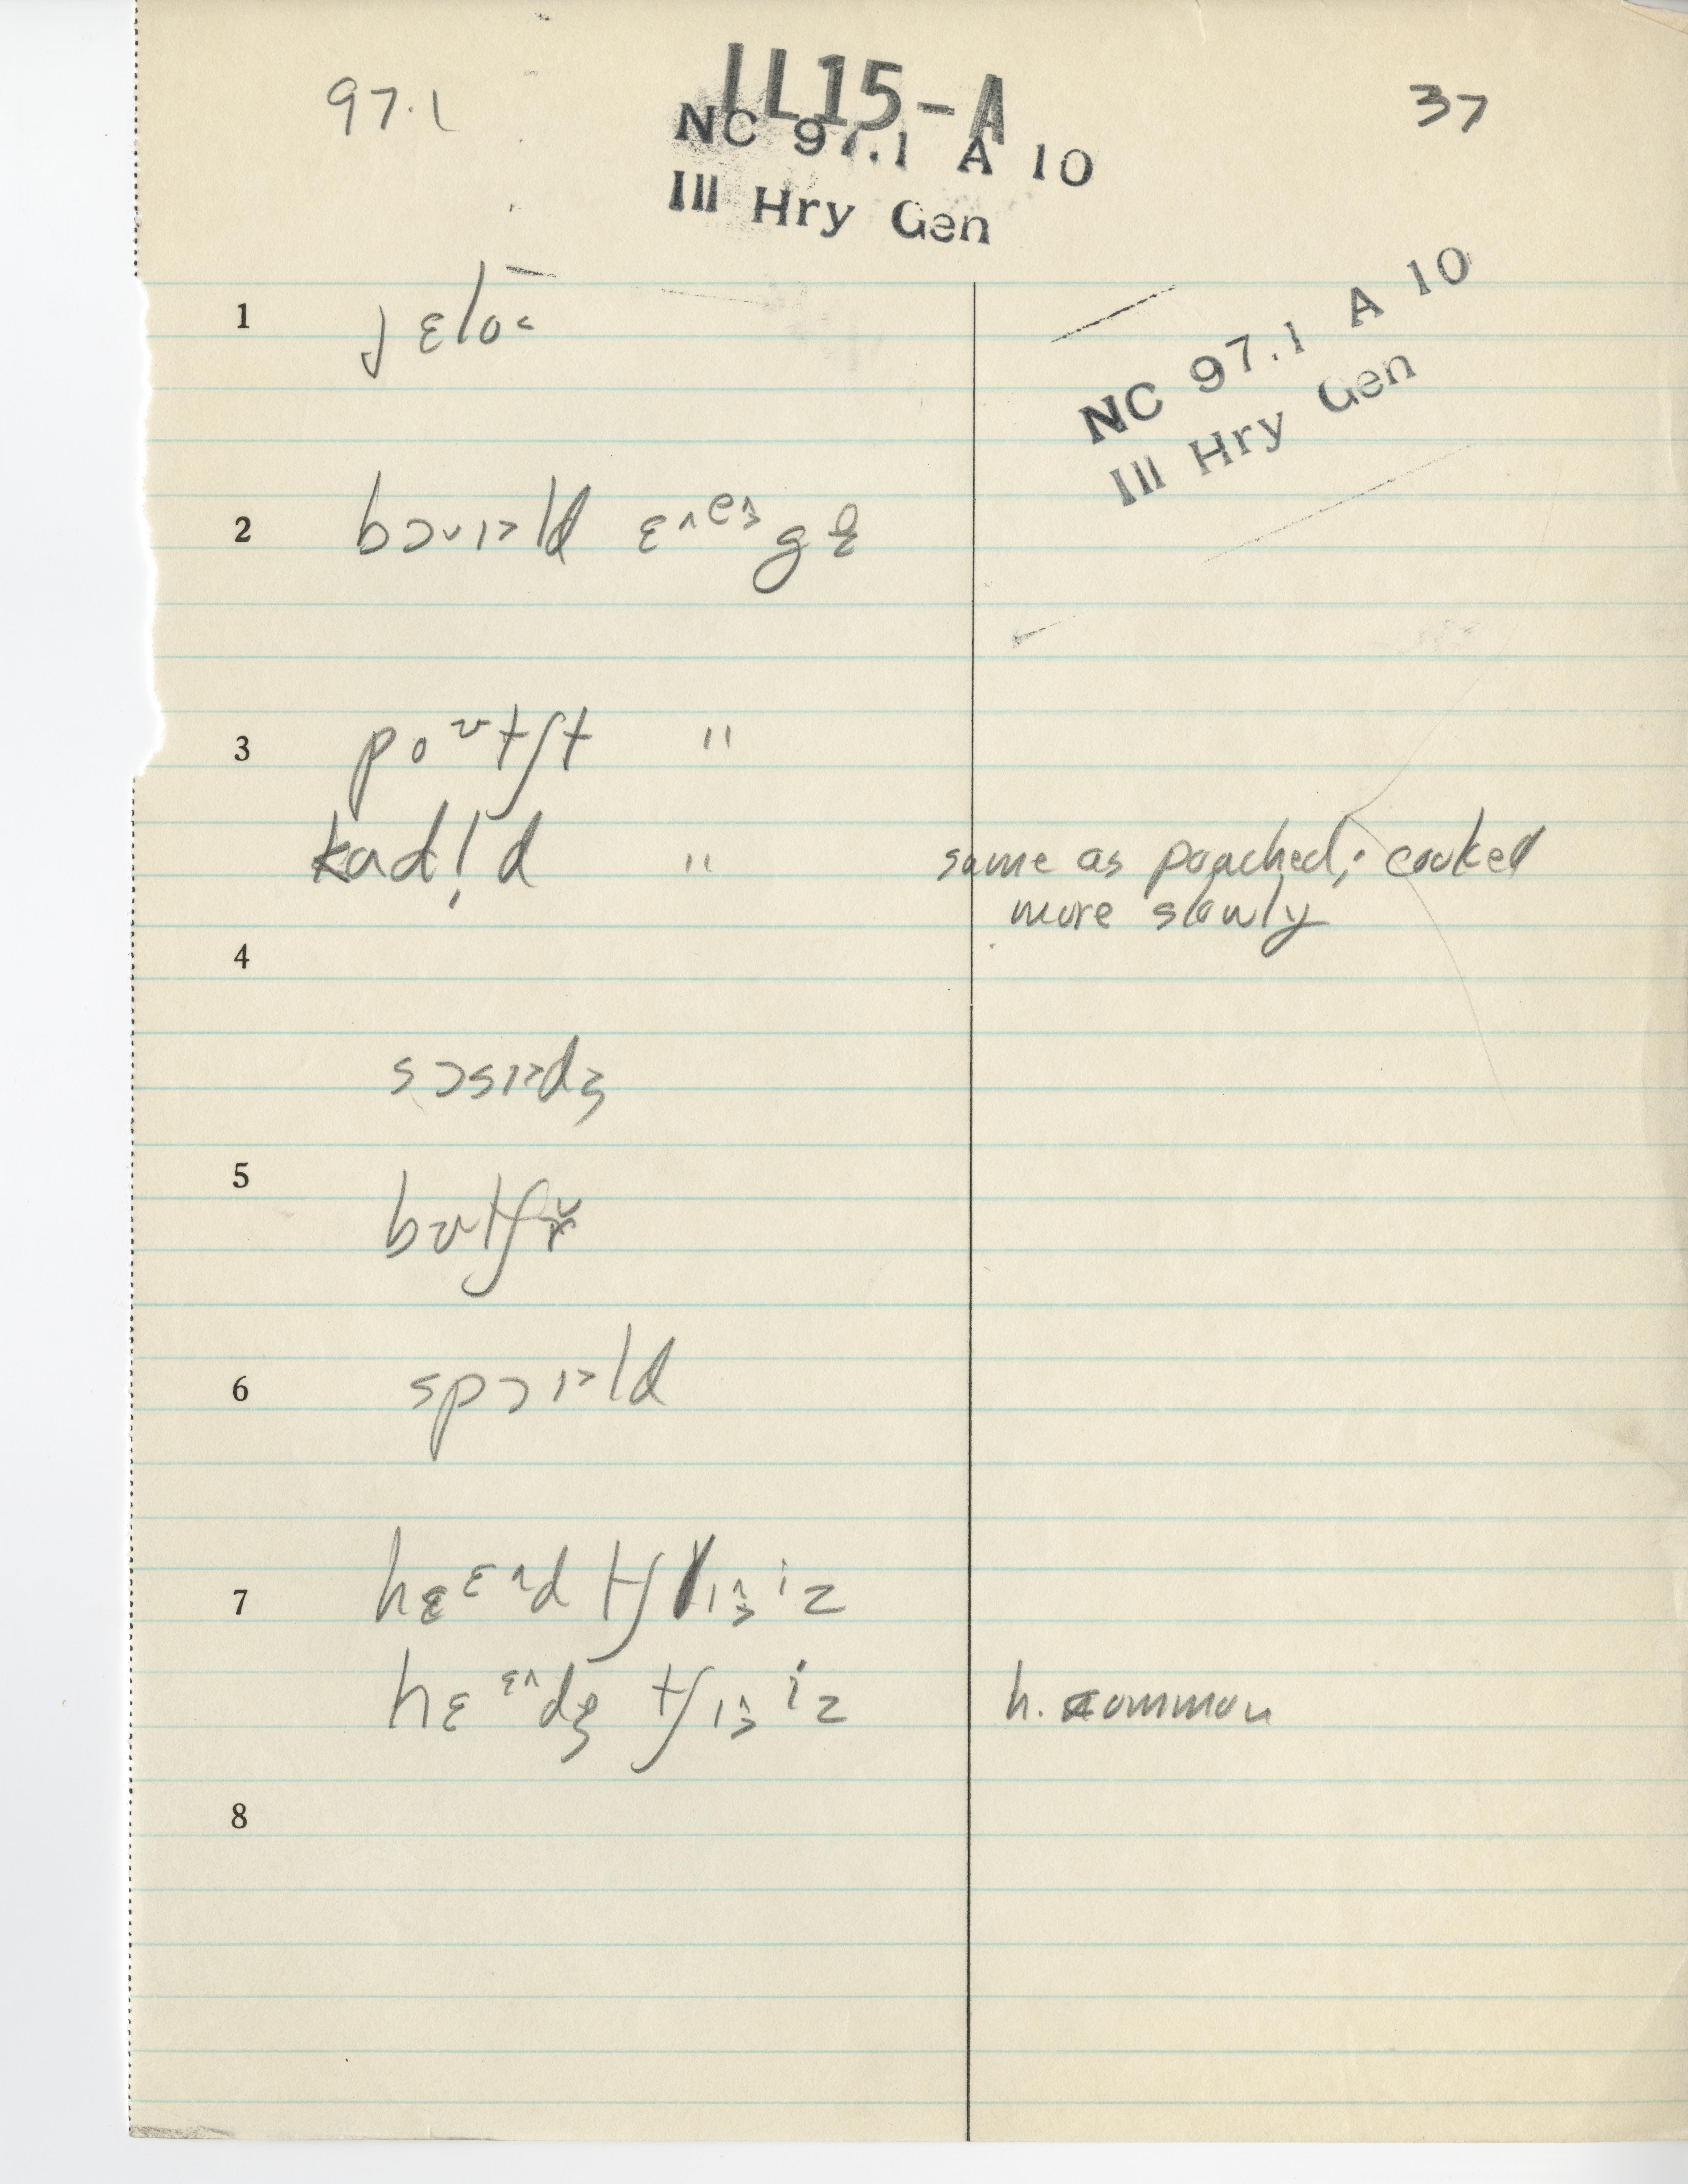 97.1 IL15-A 37
NC 97.1 A 10
Ill Hry Gen
NC 97.1 A 10
Ill Hry Gen
1 jɛlo˂
2 bɔᴠɪ˃ld ɛ˄e˄gz
3 poᶷtʃt "
kadl̩d " same as poached; cooked
more slowly
4
sɔsɪ˃dʒ
5
bʊtʃɚ
6 spɔɪ˃ld
7 hɛᵋ˄d tʃiz
hɛᵋ˄dʒ tʃiz h. common
8